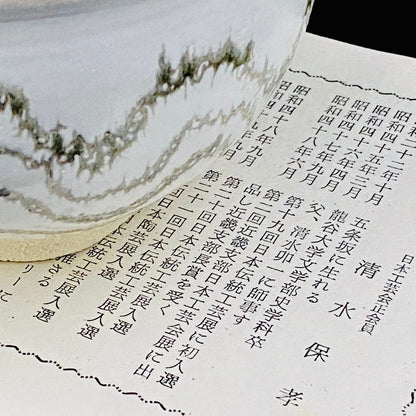 日本工芸会正会員
清水保孝
二十二年十月 五条坂に生れる
昭和四十五年三月 龍谷大学文学部史学科卒
昭和四十六年 父、清水卯一に師事す
昭和四十七年九月 第十九回日本伝統工芸展に初入選
昭和四十八年六月 第二回近畿支部日本工芸会展に出
品し近畿支部長賞を受く
昭和四十八年九月 第二十回日本伝統工芸展入選
昭和四十九年九月 第二十一回日本伝統工芸展入選
日本陶芸展入選
推さる
リーに